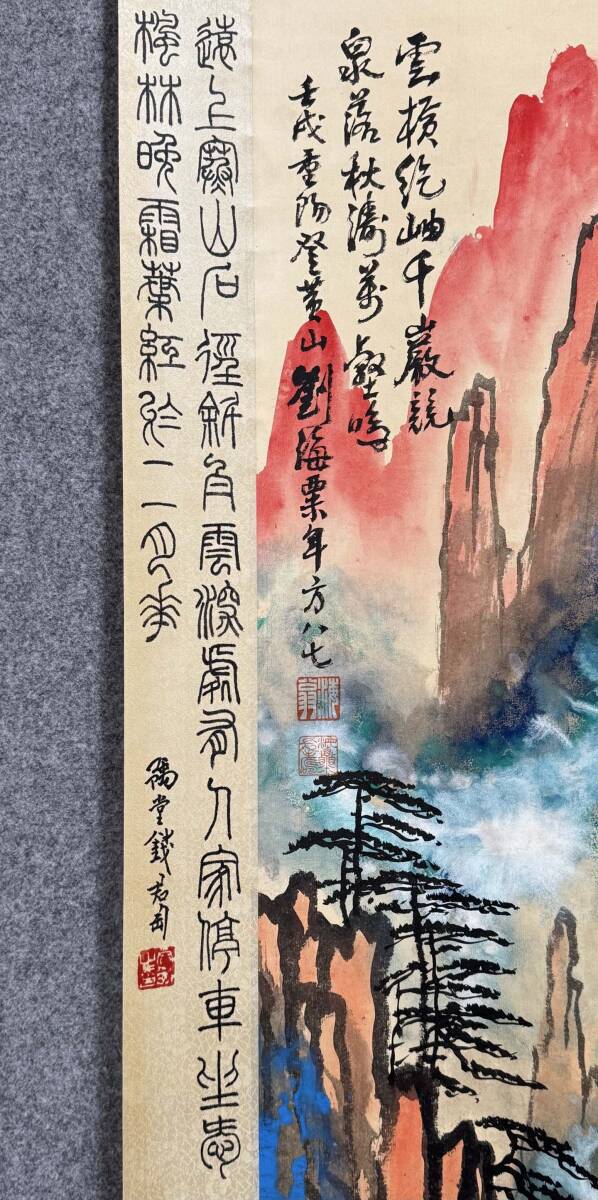 雲横絶岫千巖競
泉落秋濤萬壑鳴
壬戌重陽登黄山劉海粟年方八七
遠上寒山石徑斜白雲深處有人家停車坐愛
楓林晚霜葉紅於二月華
豫堂錢君匋